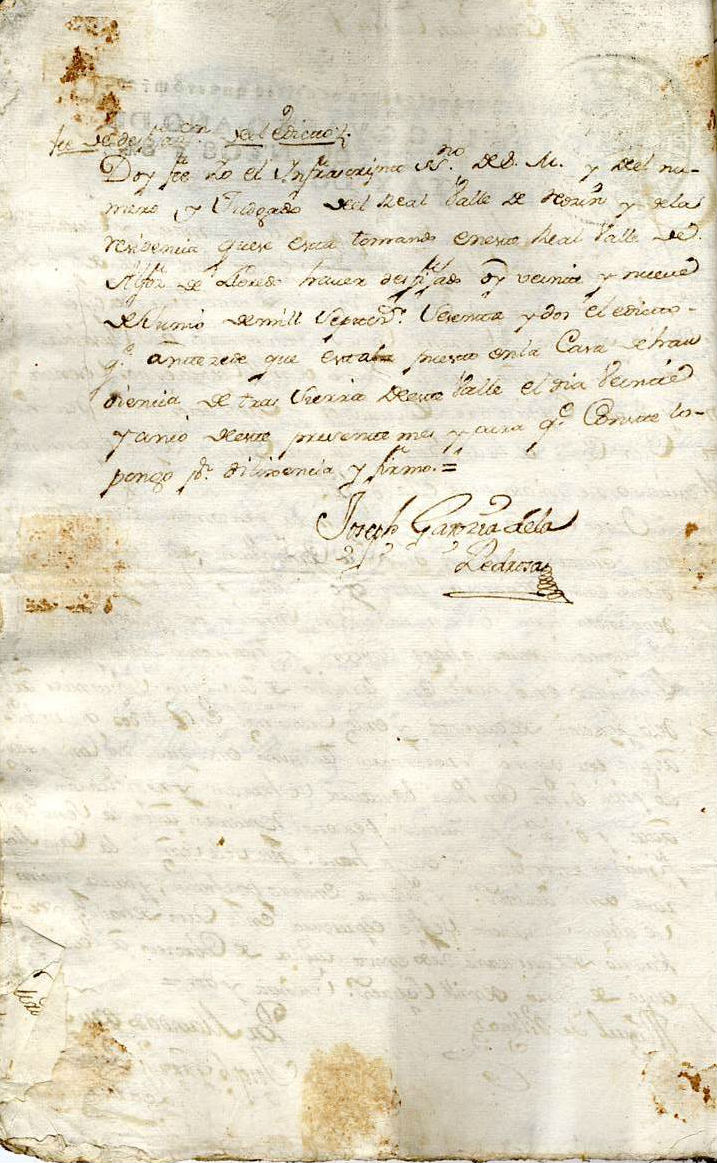 fee de desfijaz.on del edicto
Doy fee Yo el Infraescripto Ss.no de S. M. y del nu-
mero, y Judgado del Real Valle de Reozin y dela
residencia que se esta tomando en este Real Valle de
Alfoz de Lloredo haver desfijado oy veinte y nueve
de Junio de mill Septez.s Sesenta y dos el edicto
q.e antezede que estaba puesto en la Casa de hau
diencia de tras Sierra de este Valle el dia Veinte
y cinco de este presente mes y para q.e Conste lo-
pongo p.r dilixencia y firmo.=
Joseph Garzia dela
Pedrosa